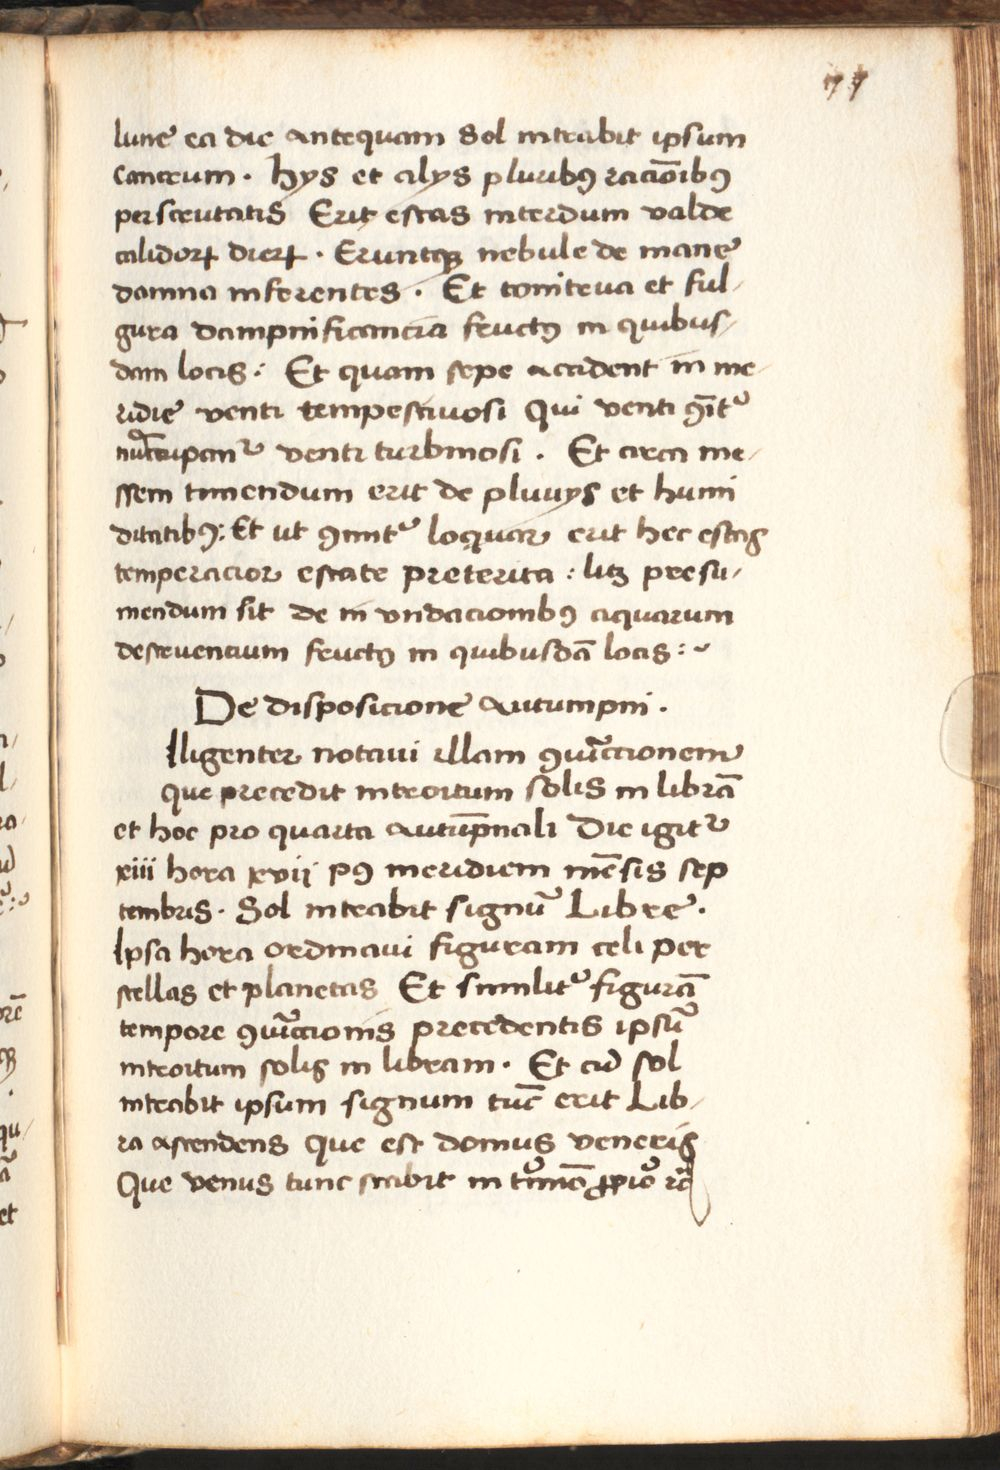 77
lune ea die antequam Sol intrabit ipsum
Cancrum . hys et alys pluribꝯ racio̅ibꝯ
perscrutatis Erit estas interdum valde
calidoꝝ dieꝝ . Eruntqꝫ nebule de mane
damna inferentes . Et tonitrua et ful-
gura dampnificancia fructꝯ in quibus-
dam locis : Et quam sepe accident in me-
ridie venti tempestuosi Qui venti
venti turbinosi . Et circa me-
ssem timendum erit de pluuys et humi
ditatibꝯ : Et ut loquar erit hec estas
temperacior estate preterita : licꝫ presu-
mendum sit de in vndacionibꝯ aquarum
destruencium fructꝯ in quibusda̅ locis : ~
De disposicione Autumpni .
Iligenter notaui illam ꝯiu̅ccionem
Que precedit introitum solis in libra̅
et hoc pro quarta autu̅pnali Die igitᷣ
xiii hora xvij pꝯ meridiem me̅sis sep
tembris . Sol intrabit signu̅ Libre .
Ipsa hora ordinaui figuram celi per
stellas et planetas Et similitᷣ figura̅
tempore ꝯiu̅ccionis precedentis ipsu̅
introitum solis in libram . Et cu̅ sol
intrabit ipsum signum tu̅c erit Lib-
ra ascendens Que est domus veneris
Que venus tunc stabit in